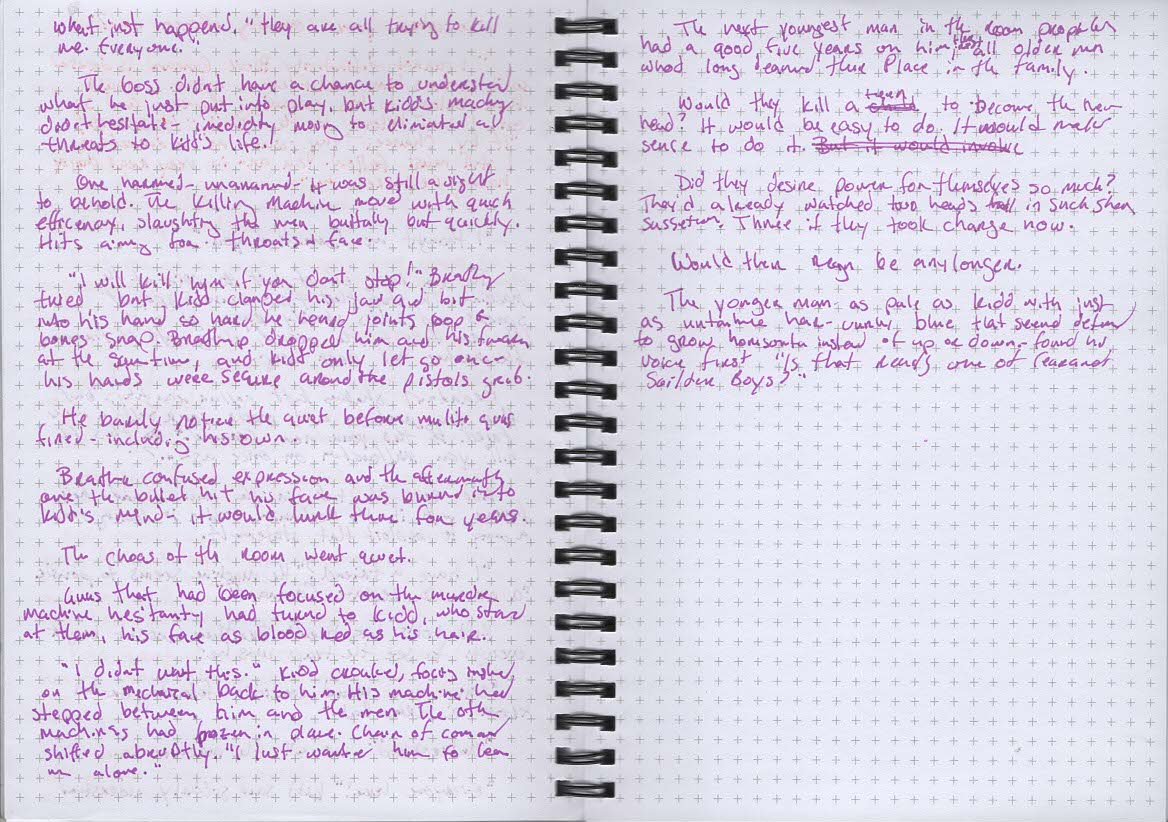 what just happend. "they are all trying to kill
me. Everyone."
The boss didn't have a chance to understand
what he just put into play, but Kidd's machine
didn't hesitate - moving to eliminated all
threats to Kidd's life.
One harmed - unmanned - it was still a sight
to behold. The killing machine moved with quick
efficency, slaughtring the men but quickly.
Hits aiming for throats + face.
"I will kill him if you don't stop!"
tried but Kidd clamped his jaw and bit
into his hand so hard he heard joints pop &
bones snap. dropped him and his
at the same time, and Kidd only let go once
his hands were secure around the pistols grab.
He barely notice the quiet before guns
fired - including his own.
confused expression and the aftermath
once the bullet hit his face was burned into
Kidd's mind - it would lurk there for years.
The choas of the room went quiet.
Guns that had been focused on the murder
machine hesitanty had turnd to Kidd, who stared
at them, his face as blood red as his hair.
"I didn't want this." Kidd croaked, focus
on the mechanical back to him. His machine had
stepped between him and the men. The other
machines had frozen in place. Chain of
shifted abruptly. "I just wanted him to leave
me alone."
The next youngest man in the room
had a good five years on him, all older men
who'd long learned their Place in the family.
Would they kill a teen to become the new
head? It would be easy to do. It would make
sense to do it. But it would invoke
Did they desire power for themselves so much?
They'd already watched two heads in such
Three if they took charge now.
Would their reign be any longer.
The younger man - as pale as Kidd with just
as hair - curly blue that
to grow instead of up or down - found his
voice first "Is that really one of
Boys?"